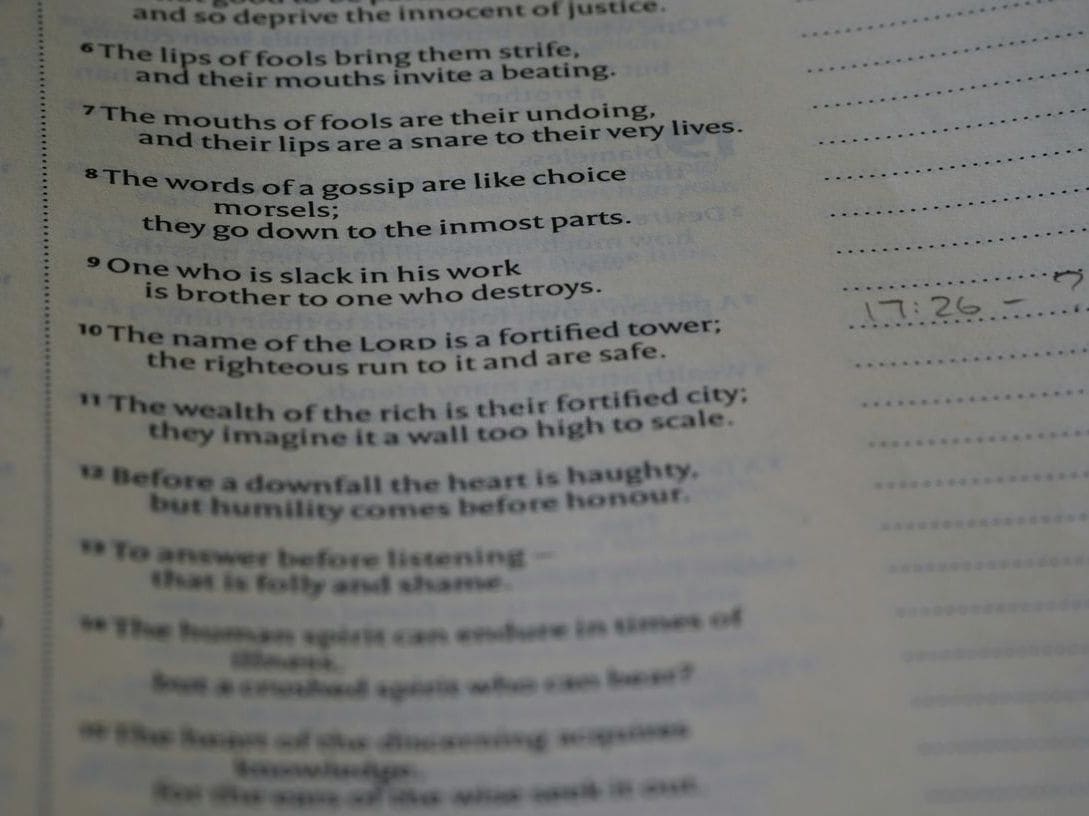 and so deprive the innocent of justice.
6 The lips of fools bring them strife,
and their mouths invite a beating.
7 The mouths of fools are their undoing,
and their lips are a snare to their very lives.
8 The words of a gossip are like choice
morsels;
they go down to the inmost parts.
9 One who is slack in his work
is brother to one who destroys.
17:26 –
10 The name of the LORD is a fortified tower;
the righteous run to it and are safe.
11 The wealth of the rich is their fortified city;
they imagine it a wall too high to scale.
12 Before a downfall the heart is haughty,
but humility comes before honour.
13 To answer before listening –
that is folly and shame.
14 The human spirit can endure in times of
illness,
but a crushed spirit who can bear?
15 The heart of the discerning acquires
knowledge,
for the ears of the wise seek it out.